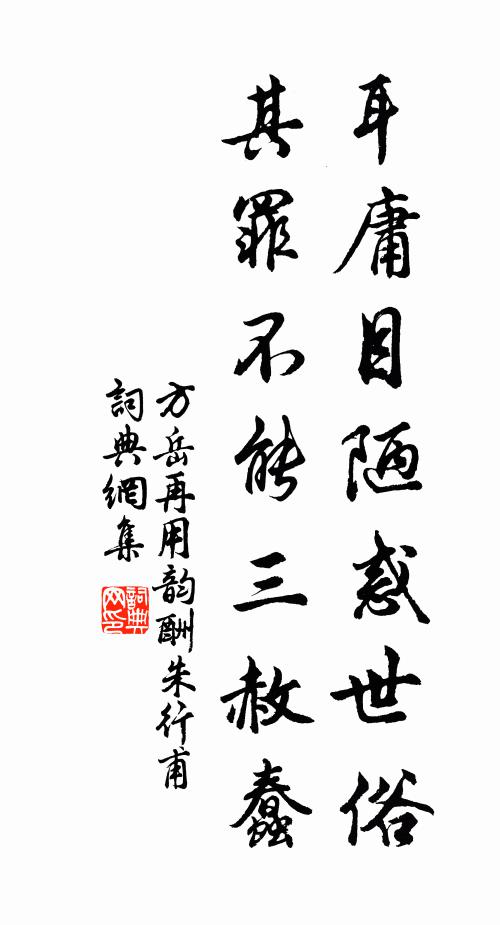 耳庸目陋惑世俗
其罪不能三赦蠢
方岳再用韵酬朱行甫
詞典網集
詞典网印